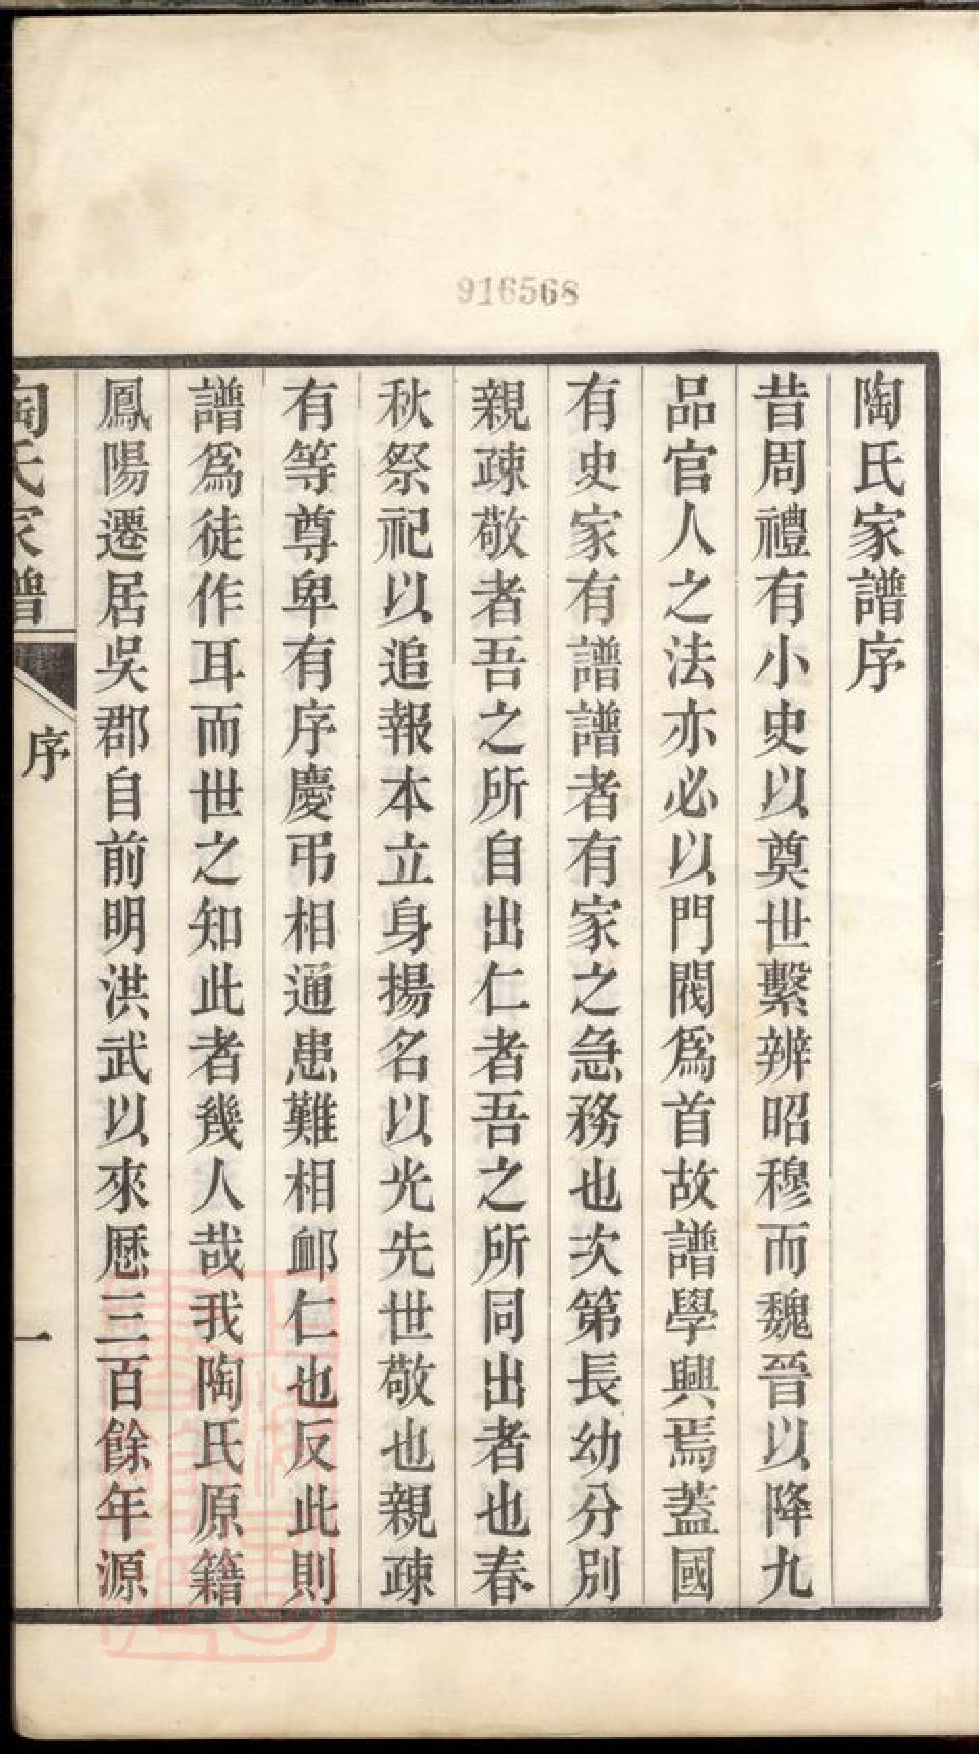 916568
陶氏家譜序
昔周禮有小史以奠世繫辨昭穆而魏晉以降九
品官人之法亦必以門閥爲首故譜學興焉蓋國
有史家有譜譜者有家之急務也次第長幼分別
親疎敬者吾之所自出仁者吾之所同出者也春
秋祭祀以追報本立身揚名以光先世敬也親疎
有等尊卑有序慶弔相通患難相卹仁也反此則
譜爲徒作耳而世之知此者幾人哉我陶氏原籍
鳳陽遷居吳郡自前明洪武以來歷三百餘年源
陶氏家譜
序
一